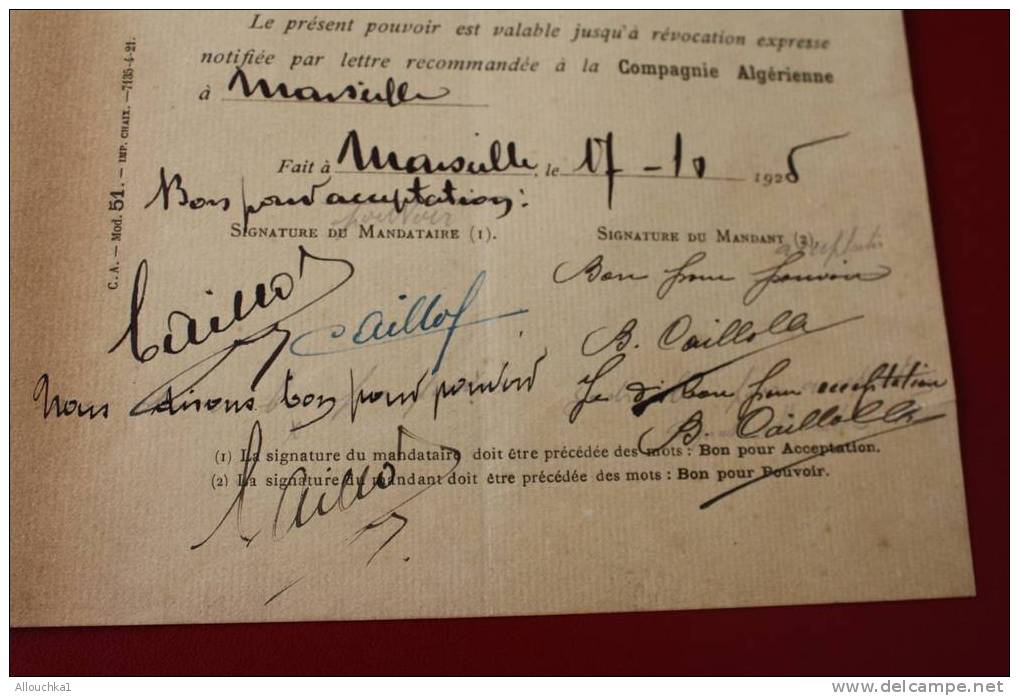 Le présent pouvoir est valable jusqu'à révocation expresse
notifiée par lettre recommandée à la Compagnie Algérienne
à Marseille
Fait à Marseille, le 17-10 1925
Bon pour acceptation:
pouvoir
SIGNATURE DU MANDATAIRE (1).
SIGNATURE DU MANDANT (2).
Bon pour pouvoir
Caillol
Caillol
B. Caillolla
Nous disons bon pour pouvoir
Je dis bon pour acceptation
B. Caillolla
(1) La signature du mandataire doit être précédée des mots : Bon pour Acceptation.
(2) La signature du mandant doit être précédée des mots : Bon pour Pouvoir.
Caillol
C. A. — Mod. 51. — IMP. CHAIX. — 7135-4-21.
Allouchka1
www.delcampe.net